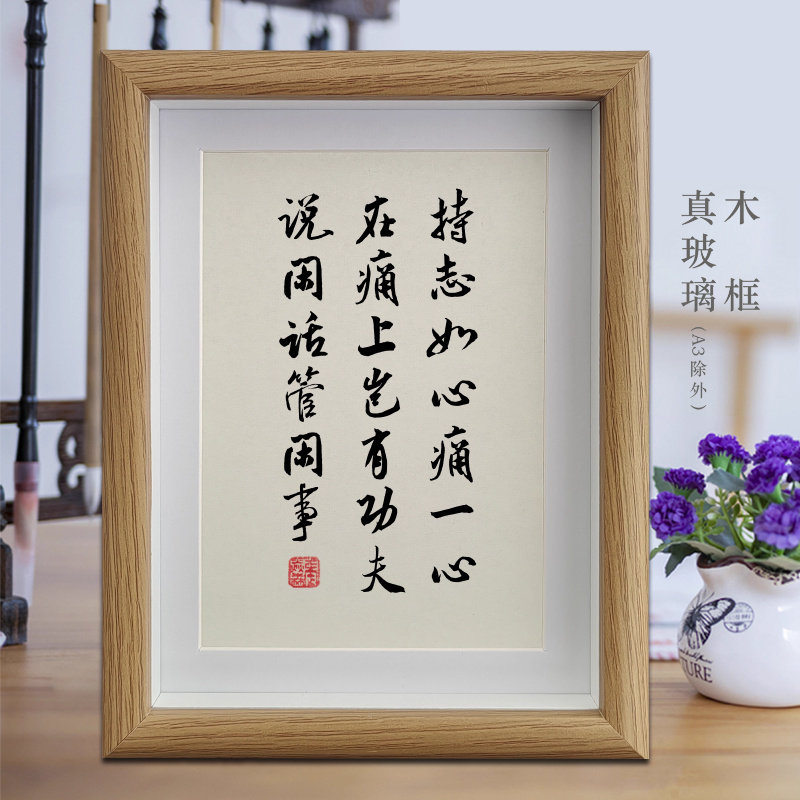 持志如心痛一心
在痛上岂有功夫
说闲话管闲事
木框
真玻璃(A3除外)